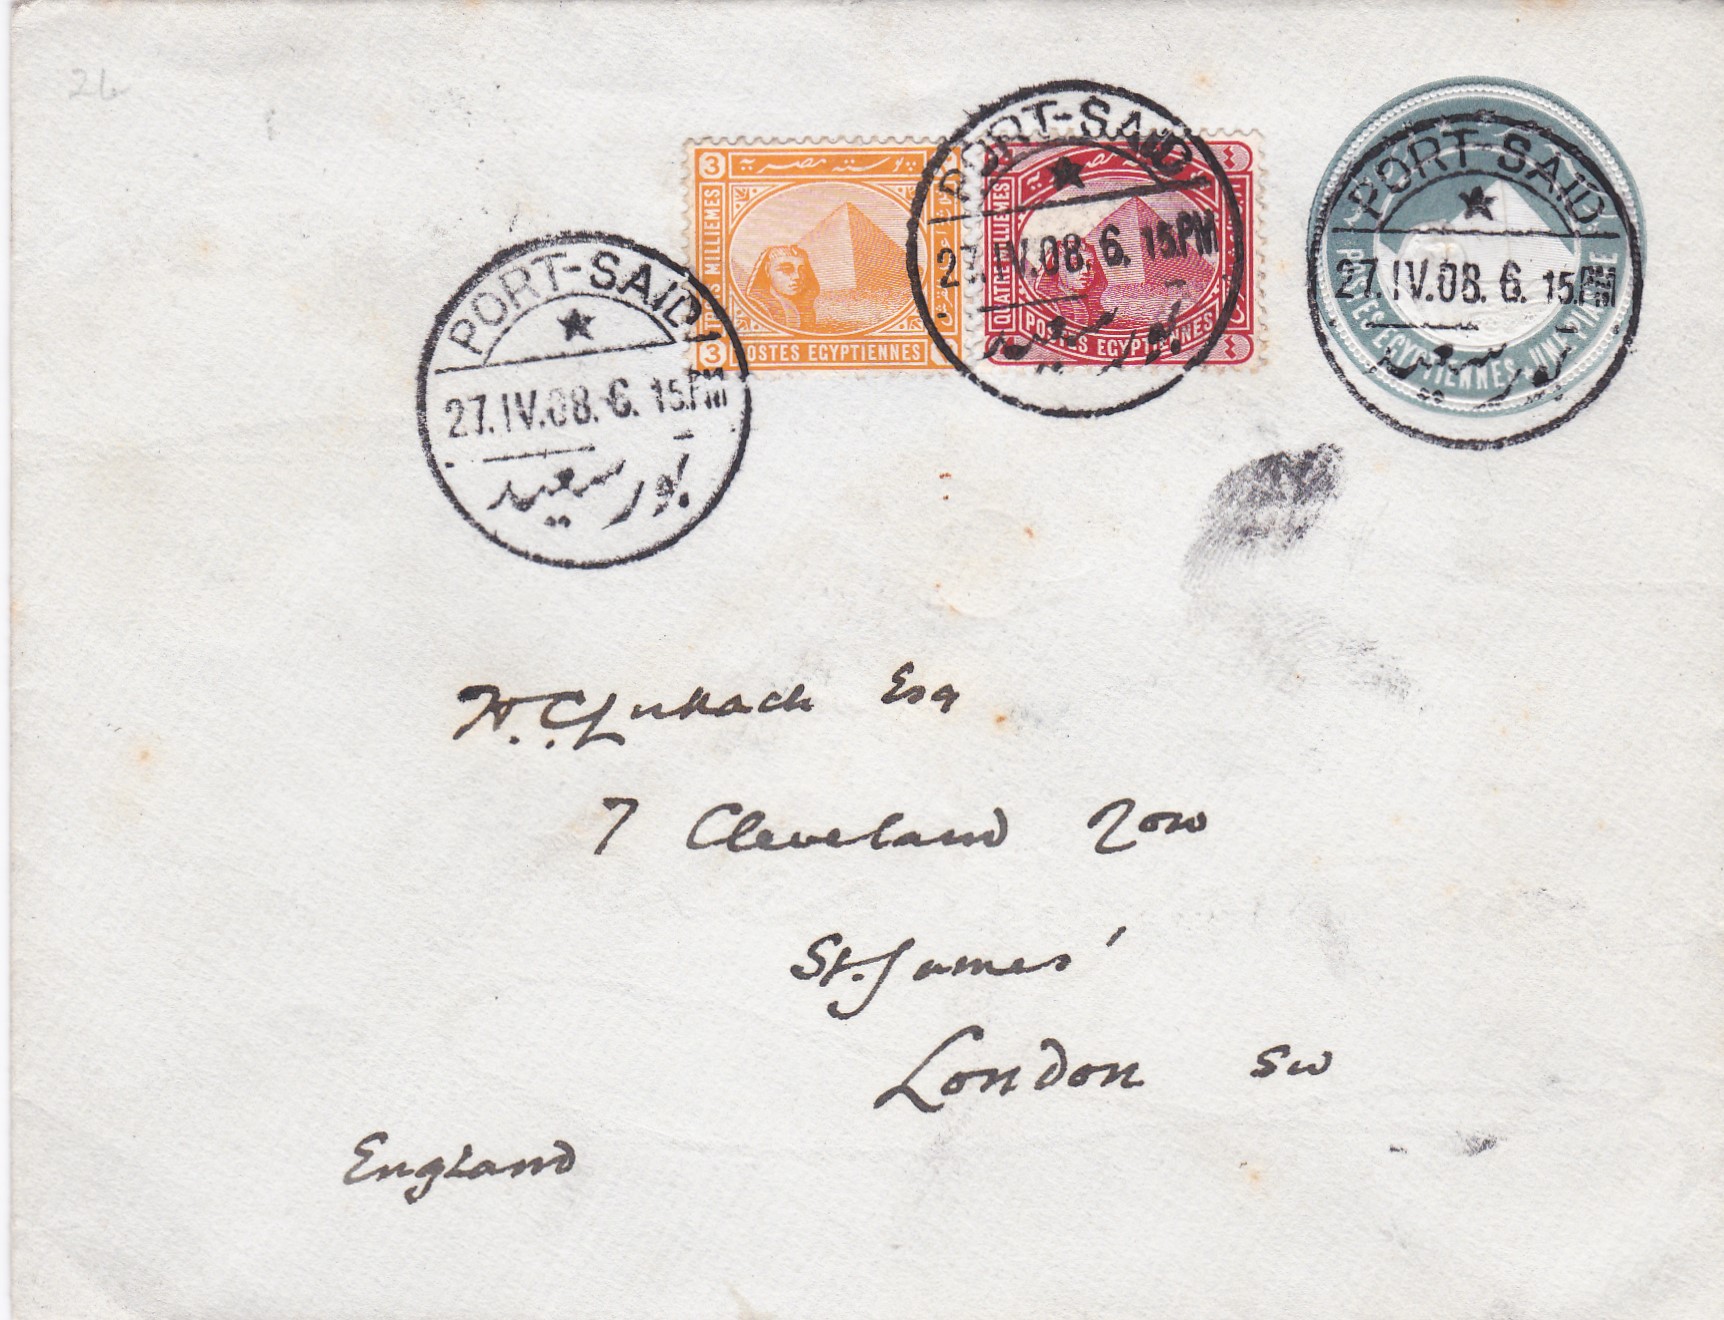 26
PORT-SAID
27.IV.08.6.15.PM
بور سعيد
3
بوستة مصرية
TROIS MILLIEMES
3
POSTES EGYPTIENNES
PORT-SAID
27.IV.08.6.15.PM
بور سعيد
QUATRE MILLIEMES
POSTES EGYPTIENNES
PORT-SAID
27.IV.08.6.15.PM
بور سعيد
POSTES EGYPTIENNES-UNE PIASTRE
H.C. Lukach Esq
7 Cleveland Row
St. James'
London SW
England